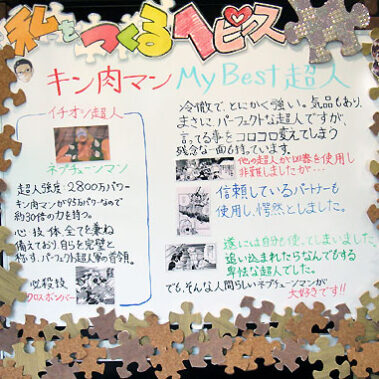 私をつくるヘピース
キン肉マン My Best 超人
イチオシ超人
ネプチューンマン
超人強度 2,800万パワー
キン肉マンが95万パワーなので
約30倍の力を持つ。
心技体全てを兼ね
備えており自らを完璧と
称す、パーフェクト超人軍の首領。
必殺技
クロスボンバー
冷徹で、とにかく強い。気品もあり、
まさに、パーフェクトな超人ですが、
言ってる事をコロコロ変えてしまう
残念な一面も持っています。
他の超人が凶器を使用し
非難しましたが…
信頼しているパートナーも
使用し、愕然としました。
遂には自分も使ってしまいました。
追い込まれたらなんでもする
卑怯な超人でした。
でも、そんな人間らしいネプチューンマンが
大好きです!!